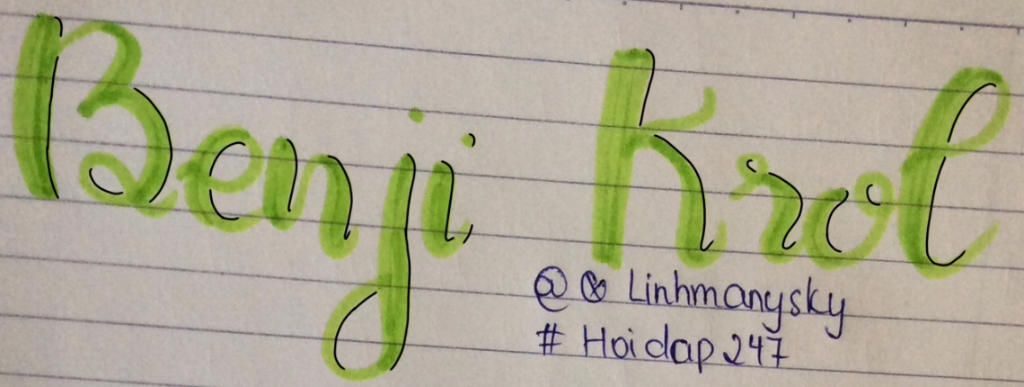 Benji Krol
@ Linhmanysky
# Hoidap247